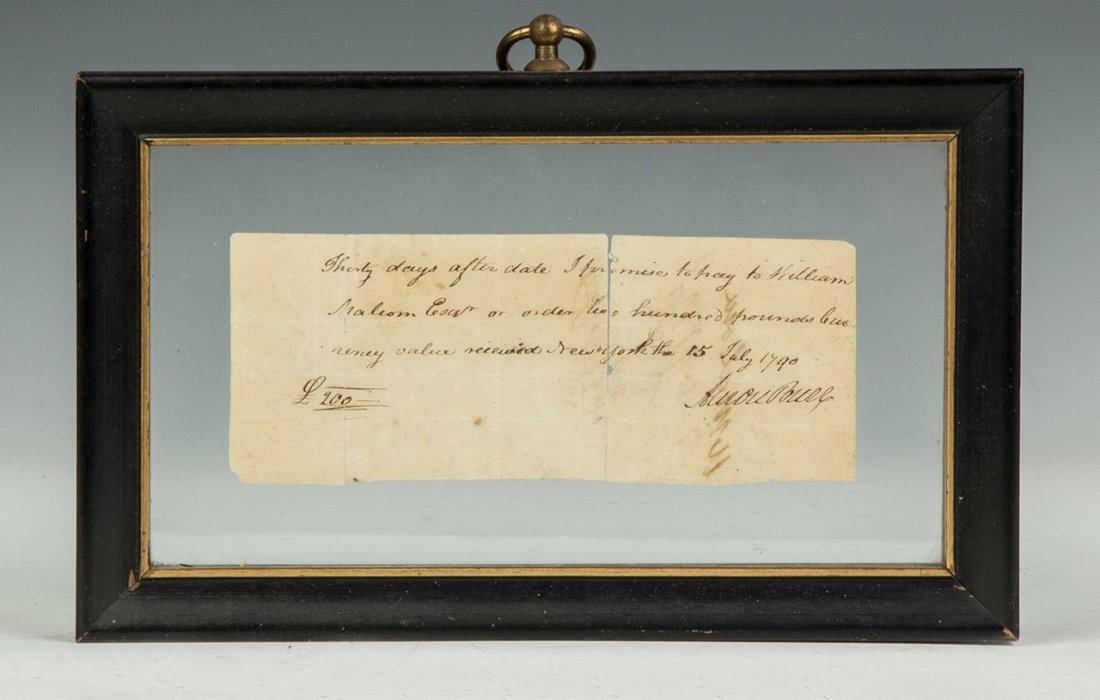 Thirty days after date I promise to pay to William
Malcom Esqr or order two hundred pounds Cur-
rency value received New York the 15 July 1790
£ 200
Aaron Burr